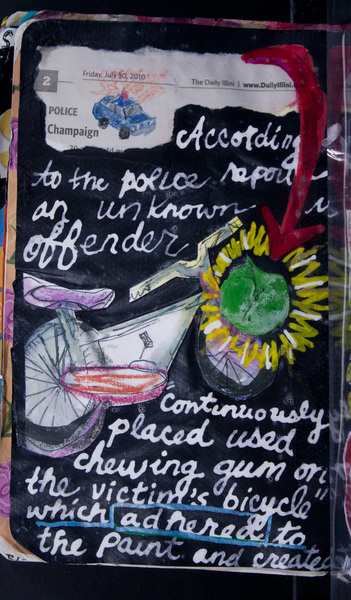 2
Friday, July 30, 2010
The Daily Illini | www.DailyIllini.com
POLICE
Champaign
According
to the police report
an unknown
offender
Continuously
placed used
chewing gum on
the victim's bicycle"
which adhered to
the paint and created